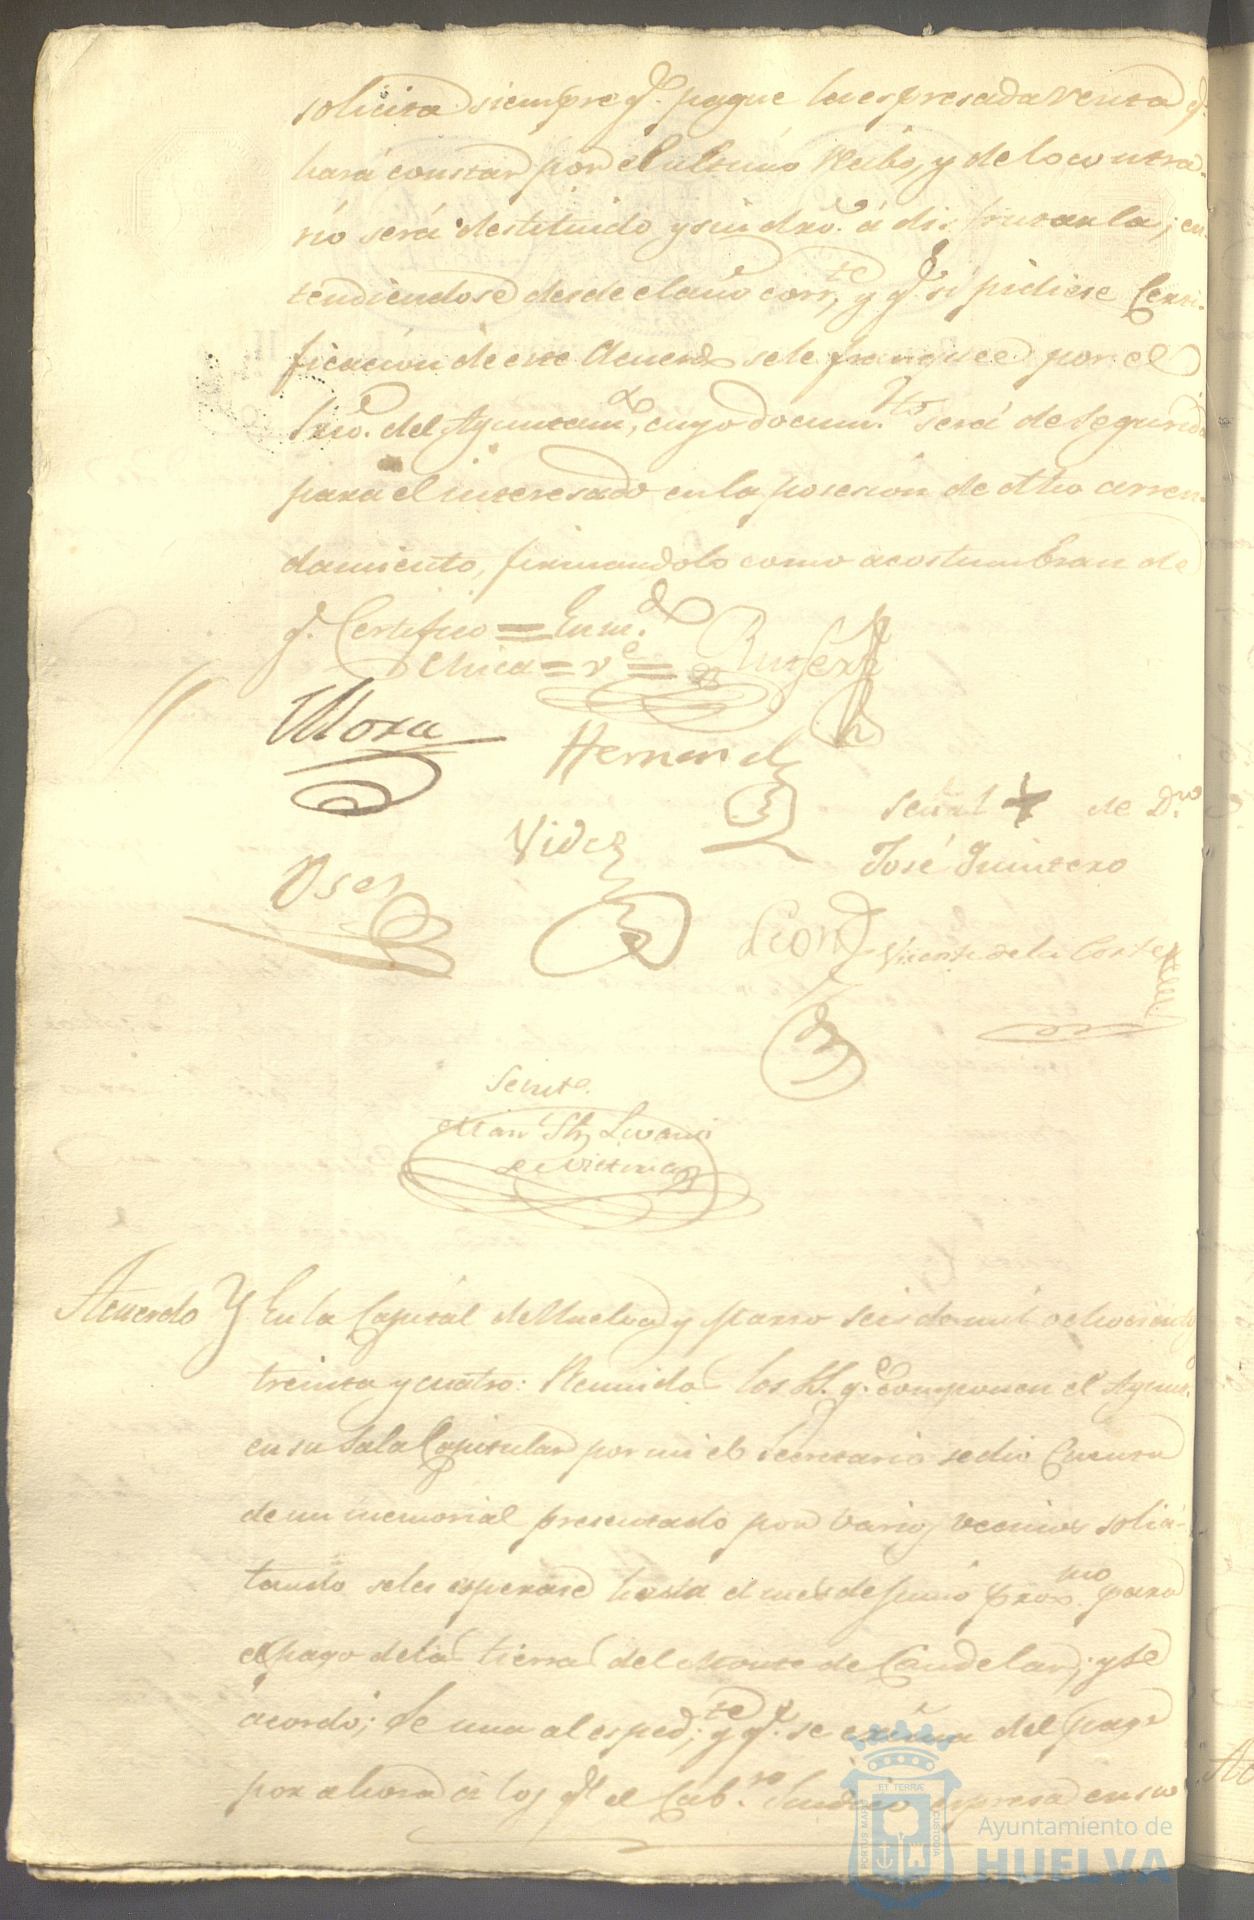 solicita siempre q.e pague la espresada renta q.e
hará constar por el ultimo Recibo, y de lo contra-
rio será destituido y sin dro. á disfrutarla; en-
tendiendose desde el año corr.te, y q.e si pidiese Certi-
ficacion de este Acuerdo se le franquee por el
Srio. del Ayuntam.to, cuyo docum.to será de seguridad
para el interesado en la posesion de dho arren-
damiento, firmandolo como acostumbran de
q.e Certifico = Enm.do
Mora
Hernandz
señal + de D.n
José Quintero
Videz
León
Vicente de la Corte
Secret.o
de Victoria
Acuerdo Y En la Capital de Huelva y Marzo seis de mil ochocientos
treinta y cuatro: Reunidos los SS. q.e componen el Ayunt.o
en su Sala Capitular por mi el Secretario se dio Cuenta
de un memorial presentado por varios vecinos solici-
tando se les esperase hasta el mes de Junio prox.mo para
el pago de las tierras del Monte de Candelar; y se
acordó; Se una al esped.te; y q.e se exima del pago
por ahora á los q.e el Cab.ro Sindico espresa en su
ET TERRÆ
PORTUS MARIS
CUSTODIA
Ayuntamiento de
HUELVA